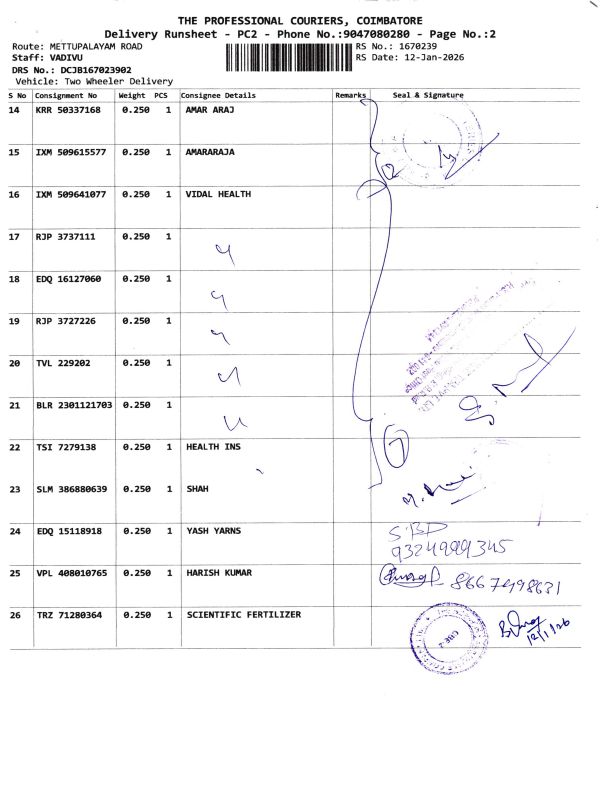 THE PROFESSIONAL COURIERS, COIMBATORE
Delivery Runsheet - PC2 - Phone No.:9047080280 - Page No.:2
Route: METTUPALAYAM ROAD
RS No.: 1670239
Staff: VADIVU
RS Date: 12-Jan-2026
DRS No.: DCJB167023902
Vehicle: Two Wheeler Delivery
S No Consignment No Weight PCS Consignee Details Remarks Seal & Signature
14 KRR 50337168 0.250 1 AMAR ARAJ
15 IXM 509615577 0.250 1 AMARARAJA
16 IXM 509641077 0.250 1 VIDAL HEALTH
17 RJP 3737111 0.250 1
18 EDQ 16127060 0.250 1
19 RJP 3727226 0.250 1
20 TVL 229202 0.250 1
21 BLR 2301121703 0.250 1
22 TSI 7279138 0.250 1 HEALTH INS
7
23 SLM 386880639 0.250 1 SHAH
24 EDQ 15118918 0.250 1 YASH YARNS
9324999345
25 VPL 408010765 0.250 1 HARISH KUMAR
8667498631
26 TRZ 71280364 0.250 1 SCIENTIFIC FERTILIZER
12/1/26